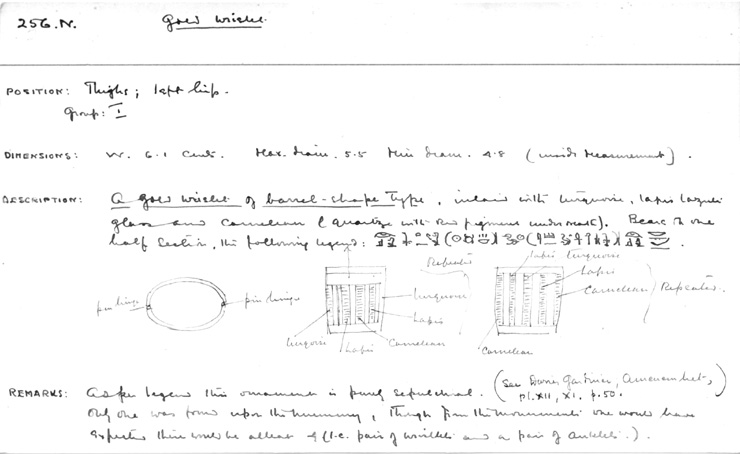 256.N. Gold wristlet.
POSITION: Thighs; left hip.
Group: I
DIMENSIONS: W. 6.1 cents. Max. diam. 5.5 Min diam. 4.8 (inside measurement).
DESCRIPTION: A gold wristlet of barrel-shape type, inlaid with turquoise, lapis lazuli
glass and carnelian (quartz with red pigment underneath). Bears on one
half section, the following legend:
lapis turquoise
Repeated
pin hinge pin hinge turquoise lapis
carnelian Repeated.
turquoise lapis carnelian carnelian
REMARKS: As per legend this ornament is purely sepulchral. (See Davies Gardiner, Amenemhet,
pl. XII, XI. p. 50.
Only one was found upon the mummy, though from the monuments one would have
expected there would be at least 4 (i.e. pair of wristlets and a pair of anklets.).